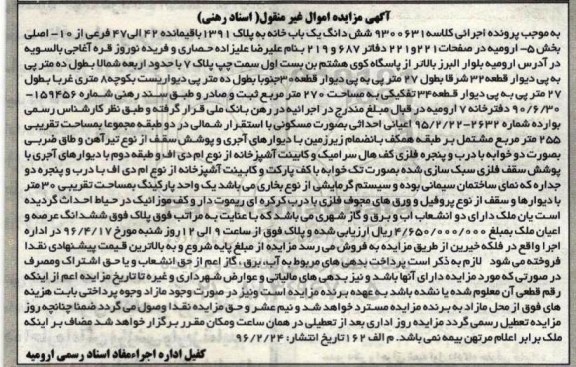 آگهی مزایده اموال غیر منقول( اسناد رهنی)
به موجب پرونده اجرائی کلاسه ۹۳۰۰۶۳۱ شش دانگ یک باب خانه به پلاک ۱۳۹۱ باقیمانده ۴۲ الی۴۷ فرعی از ۱۰- اصلی
بخش ۵- ارومیه در صفحات ۲۲۱و۲۲۱ دفاتر ۶۸۷ و ۲۱۹ بنام علیرضا علیزاده حصاری و فریده نوروز قره آغاجی بالسویه
در آدرس ارومیه بلوار البرز بالاتر از پاسگاه کوی هشتم بن بست اول سمت چپ پلاک ۷ با حدود اربعه شمالا بطول ده متر پی
به پی دیوار قطعه۳۲ شرقا بطول ۲۷ متر پی به پی دیوار قطعه۳۰ جنوبا بطول ده متر پی دیواریست بکوچه۸ متری غربا بطول
۲۷ متر پی به پی دیوار قطعه۳۴ تفکیکی به مساحت ۲۷۰ متر مربع ثبت و صادر و طبق سند رهنی شماره ۱۵۹۴۵۶-
۹۰/۶/۳۰ دفترخانه ۷ ارومیه در قبال مبلغ مندرج در اجرائیه در رهن بانک ملی قرار گرفته و طبق نظر کارشناس رسمی
بوارده شماره ۲۶۳۲-۹۵/۲/۲۲ اعیانی احداثی بصورت مسکونی با استقرار شمالی در دو طبقه مجموعا بمساحت تقریبی
۲۵۵ متر مربع مشتمل بر طبقه همکف بانضمام زیرزمین با دیوارهای آجری و پوشش سقف از نوع تیرآهن و طاق ضربی
بصورت دو خوابه با درب و پنجره فلزی کف هال سرامیک و کابینت آشپزخانه از نوع ام دی اف و طبقه دوم با دیوارهای آجری با
پوشش سقف فلزی سبک سازی شده بصورت تک خوابه با کف پارکت و کابینت آشپزخانه از نوع ام دی اف با درب و پنجره دو
جداره که نمای ساختمان سیمانی بوده و سیستم گرمایشی از نوع بخاری می باشد یک واحد پارکینگ بمساحت تقریبی ۳۰ متر
با دیوارها و سقف از نوع پروفیل و ورق های مجوف فلزی با درب کرکره ای ریموت دار و کف موزائیک در حیاط احداث گردیده
است یان ملک دارای دو انشعاب آب و برق و گاز شهری می باشد که با عنایت به مراتب فوق پلاک فوق ششدانگ عرصه و
اعیان ملک بمبلغ ۴/۶۵۰/۰۰۰/۰۰۰ ریال ارزیابی شده و پلاک فوق از ساعت ۹ الی ۱۲ روز شنبه مورخ ۹۶/۴/۱۷ در اداره
اجرا واقع در فلکه خیرین از طریق مزایده به فروش می رسد مزایده از مبلغ پایه شروع و به بالاترین قیمت پیشنهادی نقدا
فروخته می شود لازم به ذکر است پرداخت بدهی های مربوط به آب، برق، گاز اعم از حق انشعاب و یا حق اشتراک ومصرف
در صورتی که مورد مزایده دارای آنها باشد و نیز بدهی های مالیاتی و عوارض شهرداری و غیره تا تاریخ مزایده اعم از اینکه
رقم قطعی آن معلوم شده یا نشده باشد به عهده برنده مزایده است ونیز در صورت وجود مازاد وجوه پرداختی بابت هزینه
های فوق از محل مازاد به برنده مزایده مسترد خواهد شد و نیم عشر و حق مزایده نقدا وصول می گردد ضمنا چنانچه روز
مزایده تعطیل رسمی گردد مزایده روز اداری بعد از تعطیلی در همان ساعت ومکان مقرر برگزار خواهد شد مضاف بر اینکه
ملک برابر اعلام مرتهن بیمه نمی باشد. م الف ۱۶۲ تاریخ انتشار: ۹۶/۲/۲۴
کفیل اداره اجراءمفاد اسناد رسمی ارومیه